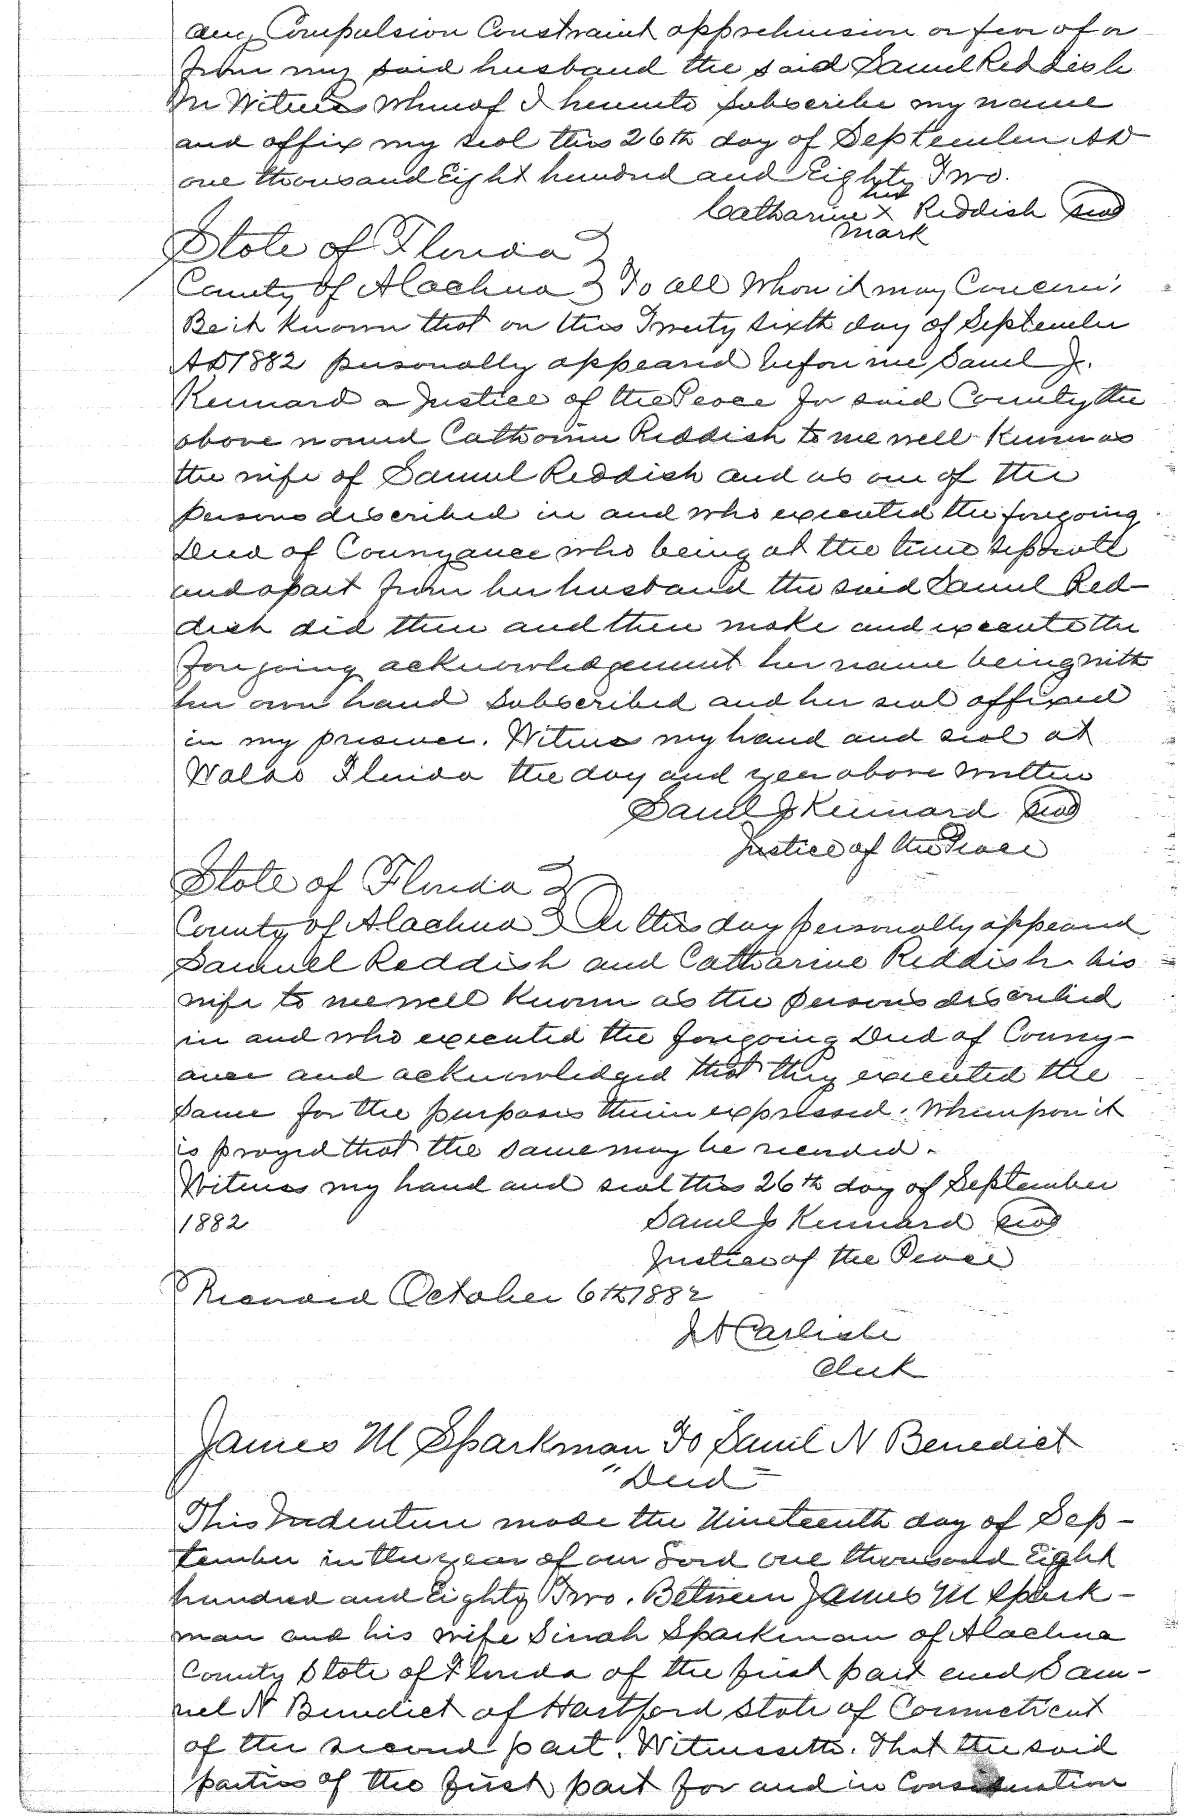 any Compulsion Constraint apprehension or fear of or
from my said husband the said Samuel Reddish
In Witness whereof I hereunto subscribe my name
and affix my seal this 26th day of September AD
one thousand Eight hundred and Eighty Two.
her
Catharine X Reddish seal
mark
State of Florida }
County of Alachua } To all whom it may Concern;
Be it known that on this Twenty sixth day of September
AD 1882 personally appeared before me Saml J.
Kennard a Justice of the Peace for said County the
above named Catharine Reddish to me well known as
the wife of Samuel Reddish and as one of the
persons described in and who executed the foregoing
Deed of Conveyance who being at the time seperate
and apart from her husband the said Samuel Red-
dish did then and there make and execute the
foregoing acknowledgement her name being with
her own hand subscribed and her seal affixed
in my presence. Witness my hand and seal at
Waldo Florida the day and year above written
Saml J Kennard seal
Justice of the Peace
State of Florida }
County of Alachua } On this day personally appeared
Samuel Reddish and Catharine Reddish his
wife to me well known as the persons described
in and who executed the foregoing Deed of Convey-
ance and acknowledged that they executed the
same for the purposes therein expressed. Whereupon it
is prayed that the same may be recorded.
Witness my hand and seal this 26th day of September
1882 Saml J Kennard seal
Justice of the Peace
Recorded October 6th 1882
J A Carlisle
Clerk
James M Sparkman To Saml N Benedict
"Deed"
This Indenture made the Nineteenth day of Sep-
tember in the year of our Lord one thousand Eight
hundred and Eighty Two. Between James M Spark-
man and his wife Sinah Sparkman of Alachua
County State of Florida of the first part and Sam-
uel N Benedict of Hartford State of Connecticut
of the second part. Witnesseth. That the said
parties of the first part for and in Consideration